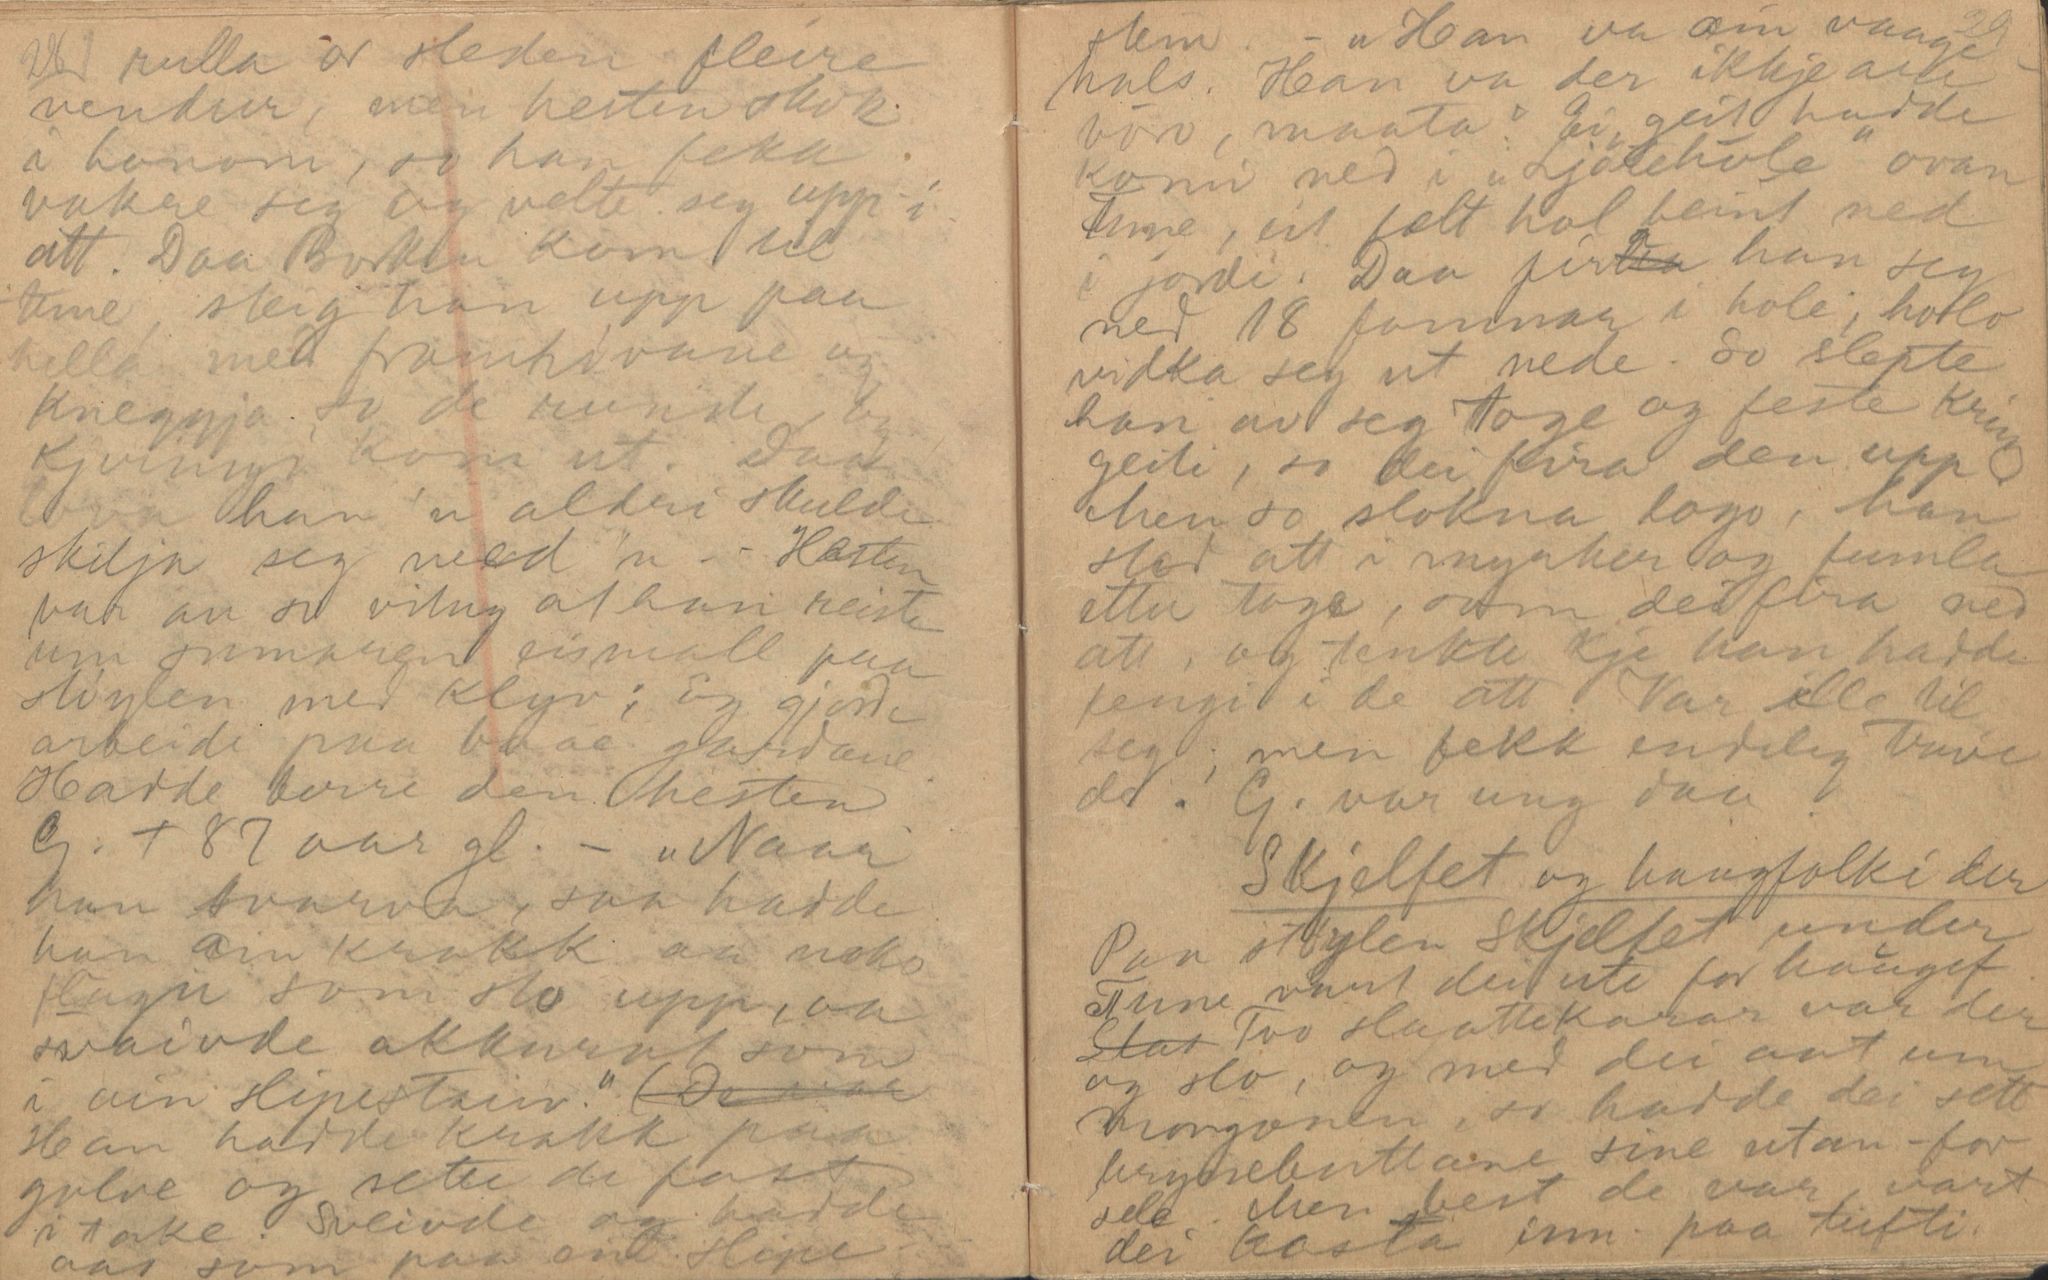 28 rulla or sleden fleire
vendur, men hesten skok
i honom, so han fekk
vakre seg og velte seg upp i
att. Daa Borken kom til
Tune, steig han upp paa
hella med framhovane og
kneggja so de runde, og
kjeringi kom ut. Daa
lova han 'n aldri skulde
skilja seg med 'n - - Hesten
var au so vitug at han reiste
um sumaren eismall paa
stöylen med klyv; og gjorde
arbeide paa baae gardane.
Hadde berre den hesten
G. + 87 aar gl. - "Naar
han svarva, saa hadde
han ain krakk aa noko
flagu som slo upp, aa
svaivde akkurat som
i ain slipestain." (De
Han hadde krakk paa
golve og sette de fast
i take. Sveivde og hadde
aas som paa ein slipe-
29
stein. - "Han va ain vaage-
hals. Han va der ikkje are
vöro, maata". Ei geit hadde
komi ned i "Ljotehole" ovan
Tune, eit fælt hol beint ned
i jordi. Daa fira han seg
ned 18 famnar i hole; holo
vidka seg ut nede. So slepte
han av seg toge og feste kring
geiti, so dei fira den upp
Men so slokna logo, han
stod att i myrker og fumla
etter toge, som dei fira ned
att, og tenkte kje han hadde
fengi i de att. Var ille til
seg; men fekk endeleg tave
de. G. var ung daa.
Skjelfet og haugfolk i der
Paa stöylen Skjelfet under
Tune vart dei ute for haugef.
Tvo slaattekarar var der
og slo, og med dei aat um
morgonen, so hadde dei sett
brynebuttane sine utan-for
sele. Men best de var, vart
dei kasta inn paa tufti.